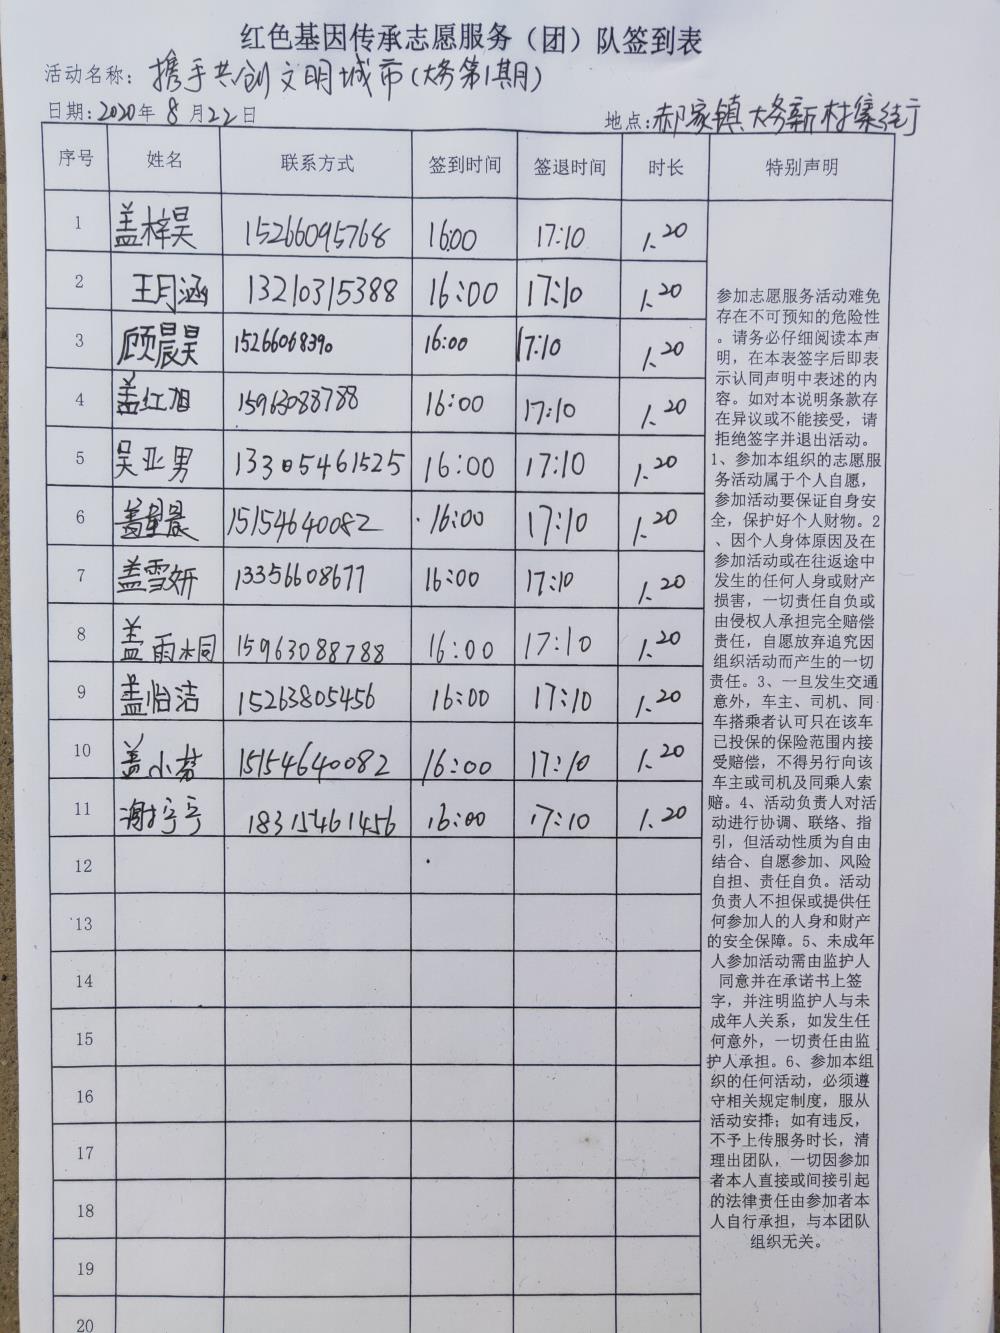 红色基因传承志愿服务（团）队签到表
活动名称：携手共创文明城市（大务第1期）
日期：2020年8月22日 地点：郝家镇大务新村
序号 姓名 联系方式 签到时间 签退时间 时长 特别声明
1 盖梓昊 15266095768 16:00 17:10 1.20
2 王月涵 13210315388 16:00 17:10 1.20
3 顾晨昊 15266068390 16:00 17:10 1.20
4 盖红旭 15963088788 16:00 17:10 1.20
5 吴亚男 13305461525 16:00 17:10 1.20
6 盖星晨 15154640082 16:00 17:10 1.20
7 盖雪妍 13356608677 16:00 17:10 1.20
8 盖雨桐 15963088788 16:00 17:10 1.20
9 盖怡洁 15263805456 16:00 17:10 1.20
10 盖小 15154640082 16:00 17:10 1.20
11 谢宁宁 18315461456 16:00 17:10 1.20
12
13
14
15
16
17
18
19
20
参加志愿服务活动难免
存在不可预知的危险性
。请务必仔细阅读本声
明，在本表签字后即表
示认同声明中表述的内
容。如对本说明条款存
在异议或不能接受，请
拒绝签字并退出活动。
1、参加本组织的志愿服
务活动属于个人自愿，
参加活动要保证自身安
全，保护好个人财物。2
、因个人身体原因及在
参加活动或在往返途中
发生的任何人身或财产
损害，一切责任自负或
由侵权人承担完全赔偿
责任，自愿放弃追究因
组织活动而产生的一切
责任。3、一旦发生交通
意外，车主、司机、同
车搭乘者认可只在该车
已投保的保险范围内接
受赔偿，不得另行向该
车主或司机及同乘人索
赔。4、活动负责人对活
动进行协调、联络、指
引，但活动性质为自由
结合、自愿参加、风险
自担、责任自负。活动
负责人不担保或提供任
何参加人的人身和财产
的安全保障。5、未成年
人参加活动需由监护人
同意并在承诺书上签
字，并注明监护人与未
成年人关系，如发生任
何意外，一切责任由监
护人承担。6、参加本组
织的任何活动，必须遵
守相关规定制度，服从
活动安排；如有违反，
不予上传服务时长，清
理出团队，一切因参加
者本人直接或间接引起
的法律责任由参加者本
人自行承担，与本团队
组织无关。